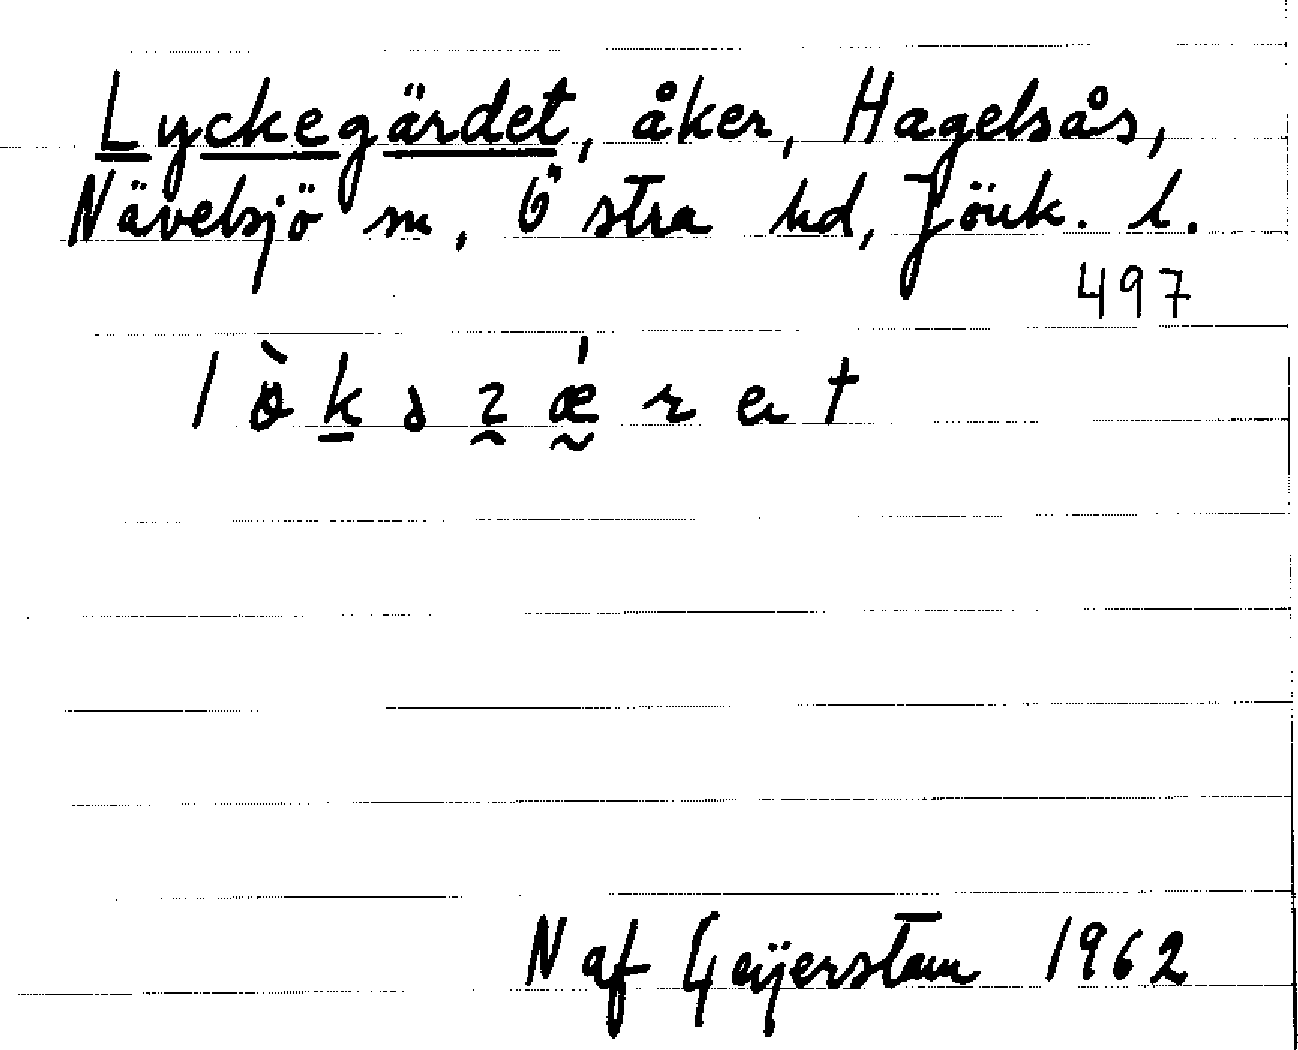 Lyckegärdet, åker, Hagelsås,
Nävelsjö sn, Östra hd, Jönk. l.
497
N af Geijerstam 1962